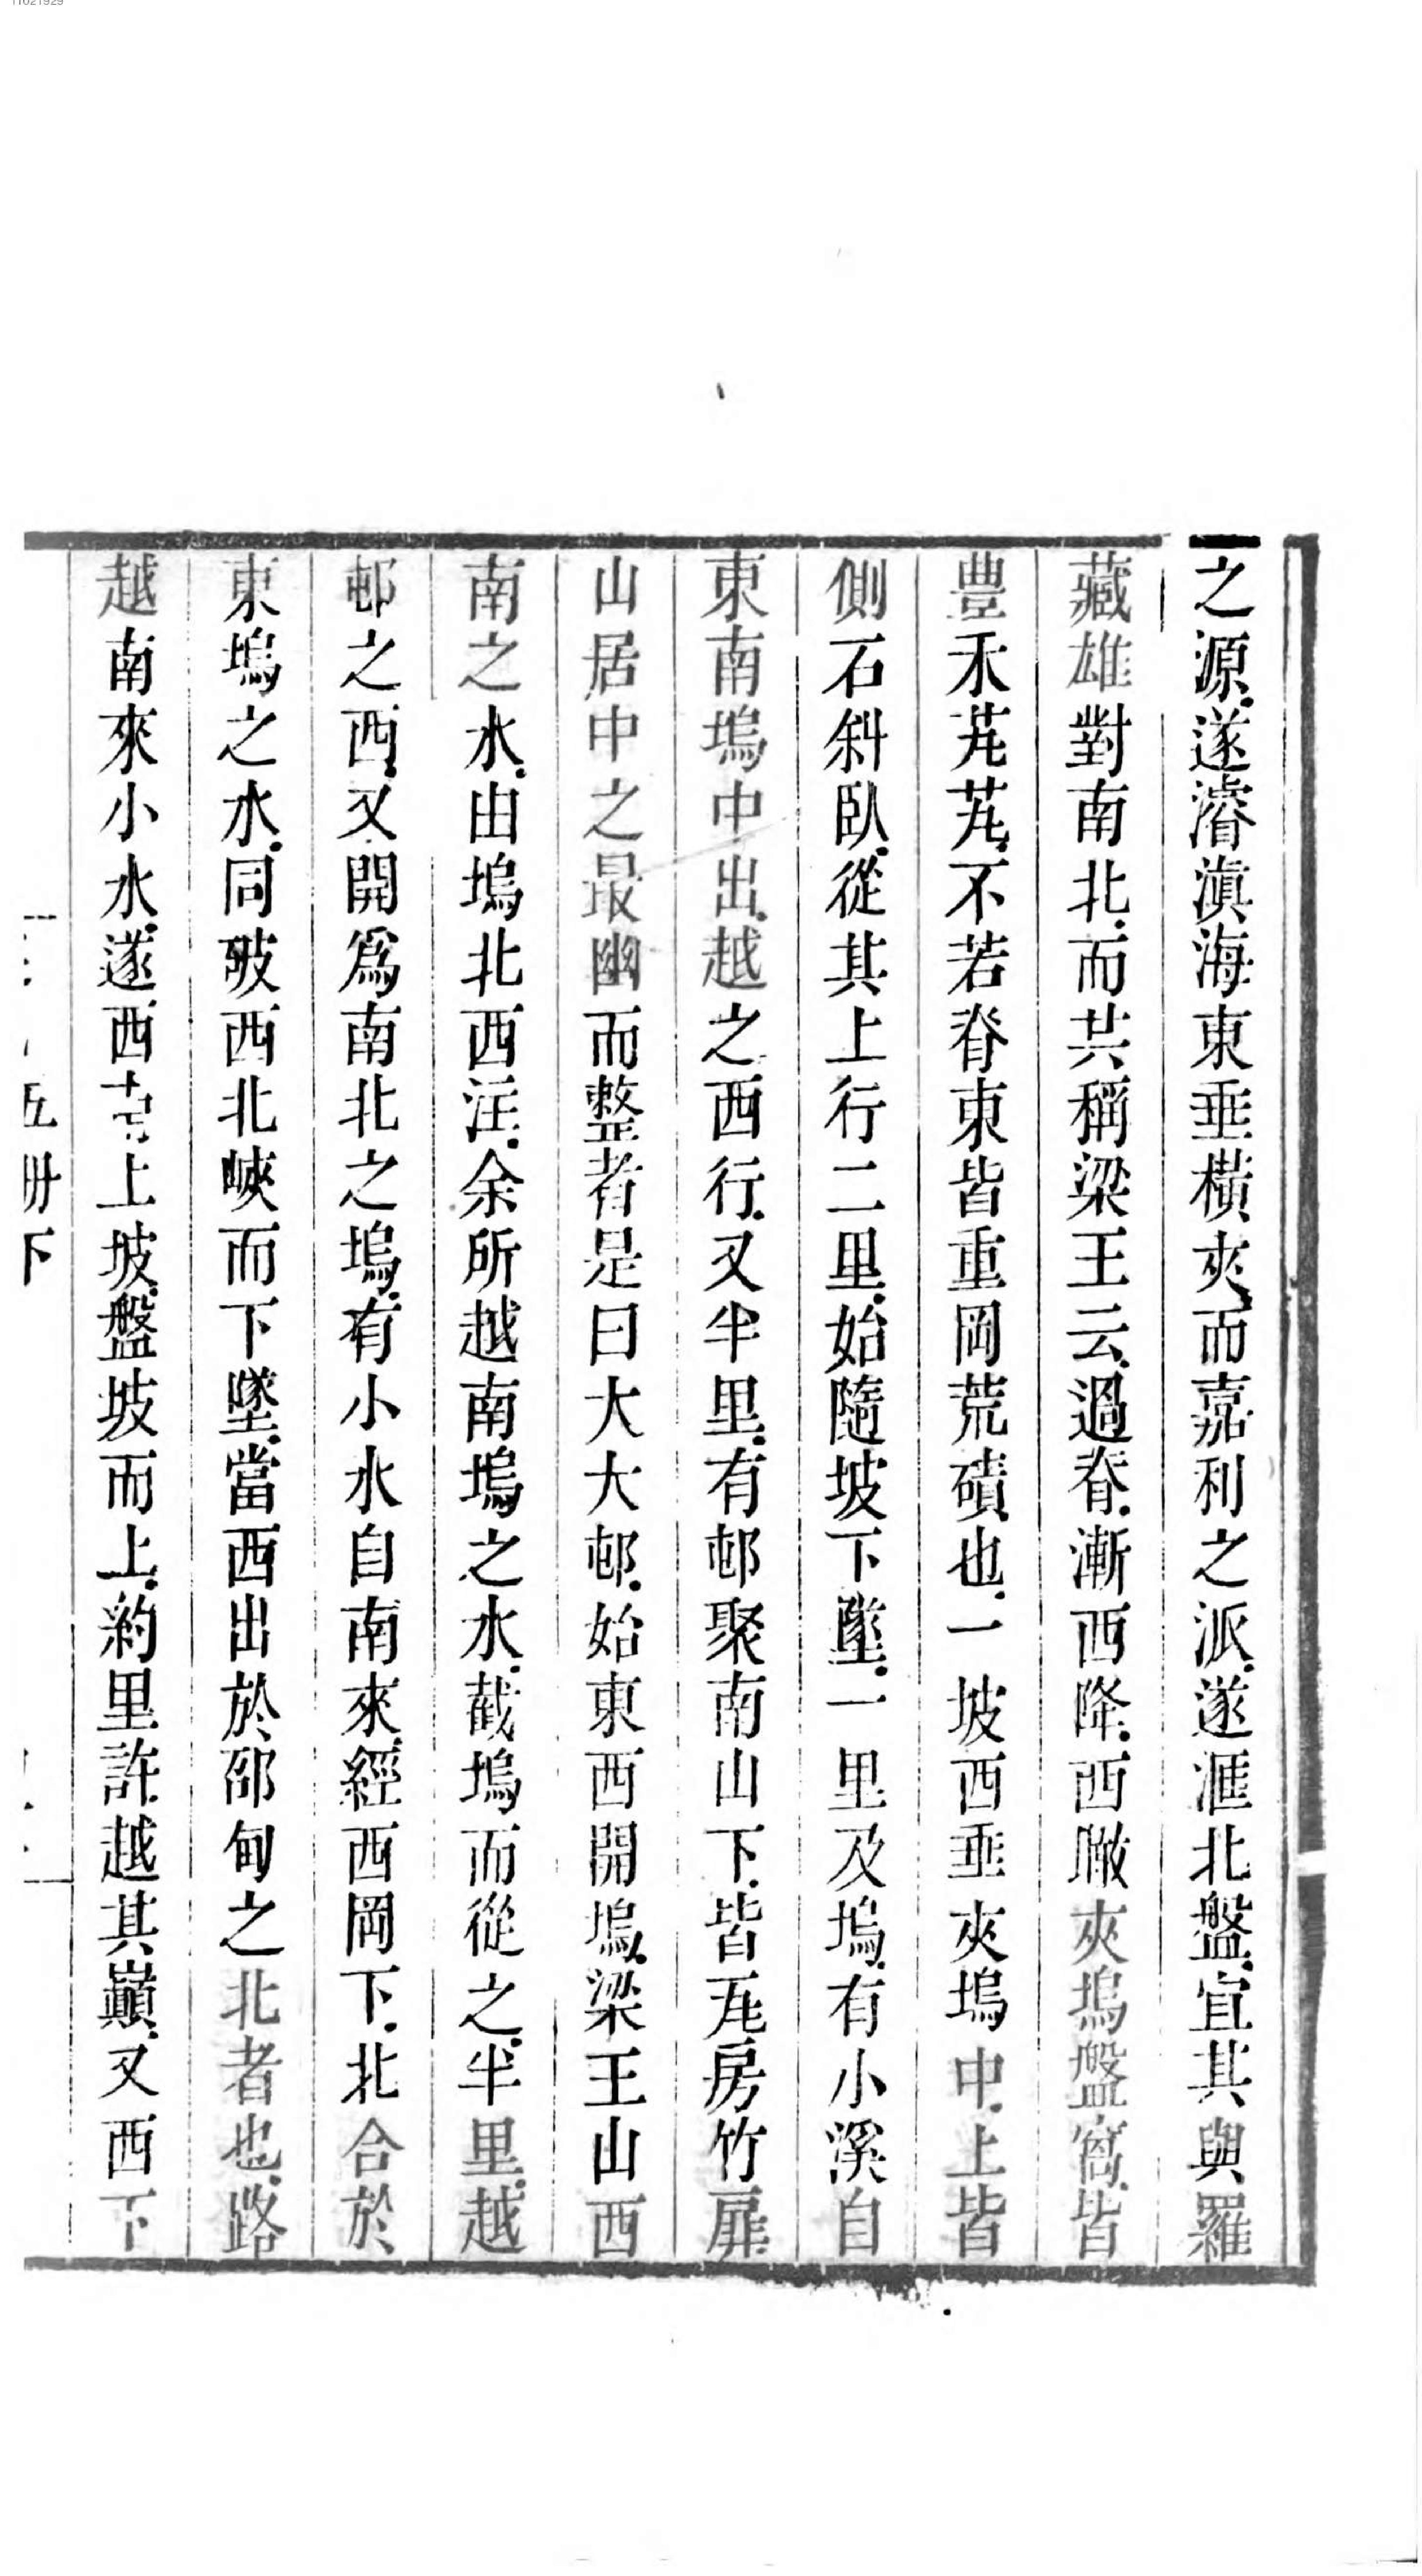 11021929
之源遂濬滇海東垂橫夾而嘉利之派遂滙北盤宜其與羅
藏雄對南北而共稱梁王云過脊漸西降西瞰夾塢盤窩皆
豊禾芃芃不若脊東皆重岡荒磧也一坡西垂夾塢中上皆
側石斜臥從其上行二里始隨坡下墜一里及塢有小溪自
東南塢中出越之西行又半里有邨聚南山下皆瓦房竹扉
山居中之最幽而整者是曰大大邨始東西開塢梁王山西
南之水由塢北西注余所越南塢之水截塢而從之半里越
邨之西又開爲南北之塢有小水自南來經西岡下北合於
東塢之水同破西北峽而下墜當西出於邵甸之北者也路
越南來小水遂西上坡盤坡而上約里許越其巔又西下
五册下